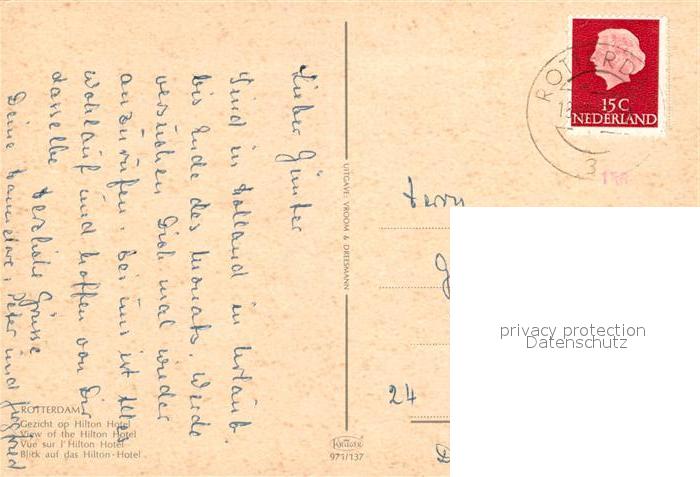 Lieber Günter
Sind in Holland in Urlaub
bis Ende des Monats. Werde
versuchen Dich mal wieder
anzurufen. Bei uns ist alles
wohlauf und hoffen von Dir
dasselbe
Herzliche Grüsse
Deine Hannelore, Peter und
ROTTERDAM
Gezicht op Hilton Hotel
View of the Hilton Hotel
Vue sur l'Hilton Hotel
Blick auf das Hilton-Hotel
UITGAVE: VROOM & DREESMANN
KRÜGER
971/137
ROTTERD
3
15C
NEDERLAND
Herrn
24
privacy protection
Datenschutz